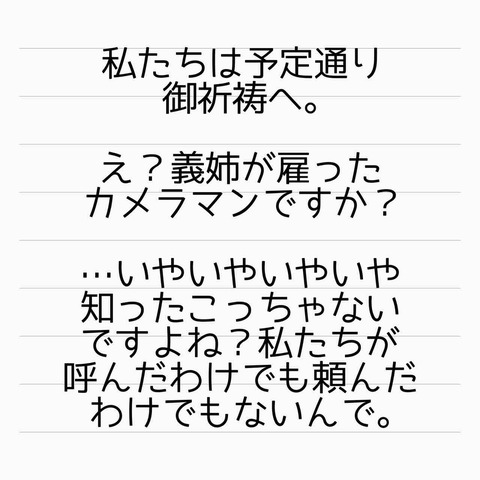 私たちは予定通り
御祈祷へ。
え？義姉が雇った
カメラマンですか？
…いやいやいやいや
知ったこっちゃない
ですよね？私たちが
呼んだわけでも頼んだ
わけでもないんで。